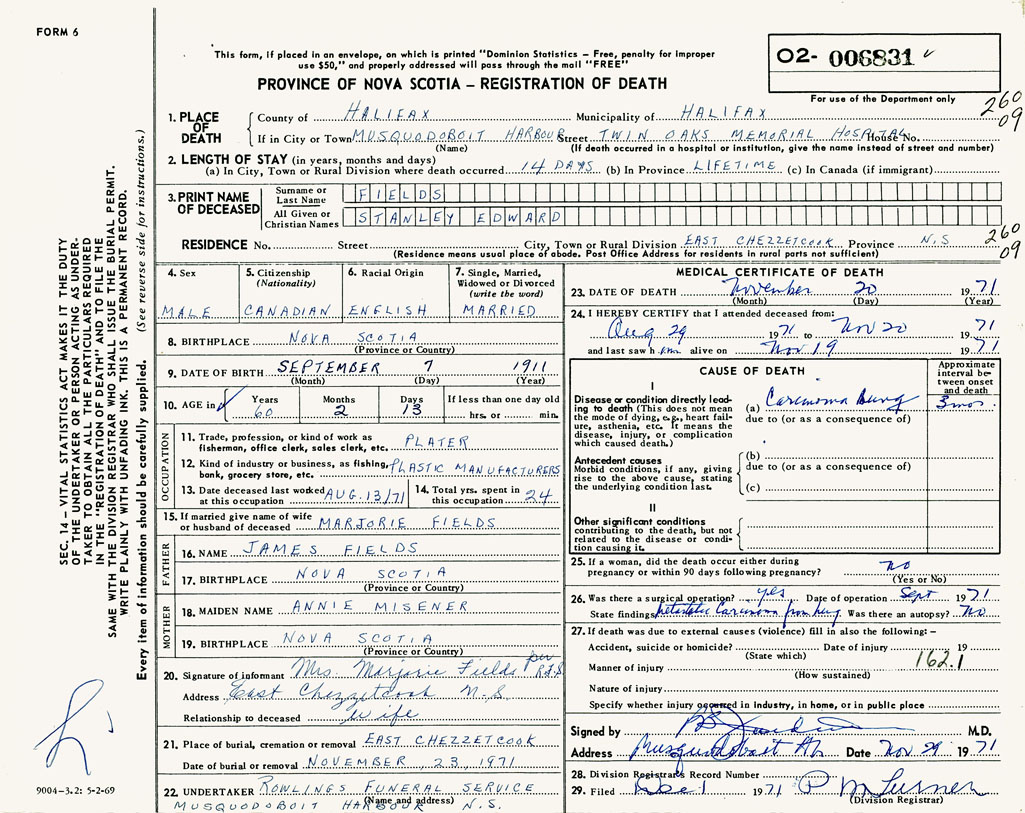 FORM 6
This form, if placed in an envelope, on which is printed "Dominion Statistics – Free, penalty for improper
use $50," and properly addressed will pass through the mail "FREE"
PROVINCE OF NOVA SCOTIA – REGISTRATION OF DEATH
02- 006831
For use of the Department only
260
09
1. PLACE OF DEATH
County of HALIFAX Municipality of HALIFAX
If in City or Town MUSQUODOBOIT HARBOUR Street TWIN OAKS MEMORIAL HOSPITAL House No.
(Name) (If death occurred in a hospital or institution, give the name instead of street and number)
2. LENGTH OF STAY (in years, months and days)
(a) In City, Town or Rural Division where death occurred 14 DAYS (b) In Province LIFETIME (c) In Canada (if immigrant)
3. PRINT NAME OF DECEASED
Surname or Last Name FIELDS
All Given or Christian Names STANLEY EDWARD
RESIDENCE No. Street City, Town or Rural Division EAST CHEZZETCOOK Province N.S
260
09
(Residence means usual place of abode. Post Office Address for residents in rural parts not sufficient)
4. Sex
MALE
5. Citizenship
(Nationality)
CANADIAN
6. Racial Origin
ENGLISH
7. Single, Married,
Widowed or Divorced
(write the word)
MARRIED
8. BIRTHPLACE NOVA SCOTIA
(Province or Country)
9. DATE OF BIRTH SEPTEMBER 7 1911
(Month) (Day) (Year)
10. AGE in Years Months Days If less than one day old
60 2 13 hrs. or min.
OCCUPATION
11. Trade, profession, or kind of work as
fisherman, office clerk, sales clerk, etc. PLATER
12. Kind of industry or business, as fishing,
bank, grocery store, etc. PLASTIC MANUFACTURERS
13. Date deceased last worked
at this occupation AUG.13/71
14. Total yrs. spent in
this occupation 24
15. If married give name of wife
or husband of deceased MARJORIE FIELDS
FATHER
16. NAME JAMES FIELDS
17. BIRTHPLACE NOVA SCOTIA
(Province or Country)
MOTHER
18. MAIDEN NAME ANNIE MISENER
19. BIRTHPLACE NOVA SCOTIA
(Province or Country)
20. Signature of informant Mrs. Marjorie Fields per
Address East Chezzetcook N.S
Relationship to deceased Wife
21. Place of burial, cremation or removal EAST CHEZZETCOOK
Date of burial or removal NOVEMBER, 23, 1971
22. UNDERTAKER ROWLINGS FUNERAL SERVICE
(Name and address)
MUSQUODOBOIT HARBOUR N.S.
MEDICAL CERTIFICATE OF DEATH
23. DATE OF DEATH November 20 1971
(Month) (Day) (Year)
24. I HEREBY CERTIFY that I attended deceased from:
Aug 29 1971 to Nov 20 1971
and last saw him alive on Nov 19 1971
CAUSE OF DEATH
Approximate
interval be-
tween onset
and death
I
Disease or condition directly lead-
ing to death (This does not mean
the mode of dying, e.g., heart fail-
ure, asthenia, etc. It means the
disease, injury, or complication
which caused death.)
(a) Carcinoma Lung 3 mos.
due to (or as a consequence of)
Antecedent causes
Morbid conditions, if any, giving
rise to the above cause, stating
the underlying condition last.
(b)
due to (or as a consequence of)
(c)
II
Other significant conditions
contributing to the death, but not
related to the disease or condi-
tion causing it.
25. If a woman, did the death occur either during
pregnancy or within 90 days following pregnancy? No
(Yes or No)
26. Was there a surgical operation? yes Date of operation Sept 1971
State findings metastatic Carcinoma from lung Was there an autopsy? No
27. If death was due to external causes (violence) fill in also the following: –
Accident, suicide or homicide? Date of injury 19
(State which)
162.1
Manner of injury
(How sustained)
Nature of injury
Specify whether injury occurred in industry, in home, or in public place
Signed by M.D.
Address Musquodoboit Hb Date Nov. 29 1971
28. Division Registrar's Record Number
29. Filed Dec 1 1971 P M Turner
(Division Registrar)
SEC. 14 – VITAL STATISTICS ACT MAKES IT THE DUTY
OF THE UNDERTAKER OR PERSON ACTING AS UNDER-
TAKER TO OBTAIN ALL THE PARTICULARS REQUIRED
IN THE "REGISTRATION OF DEATH" AND TO FILE THE
SAME WITH THE DIVISION REGISTRAR WHO SHALL ISSUE THE BURIAL PERMIT.
WRITE PLAINLY WITH UNFADING INK. THIS IS A PERMANENT RECORD.
Every item of information should be carefully supplied. (See reverse side for instructions.)
9004-3.2: 5-2-69